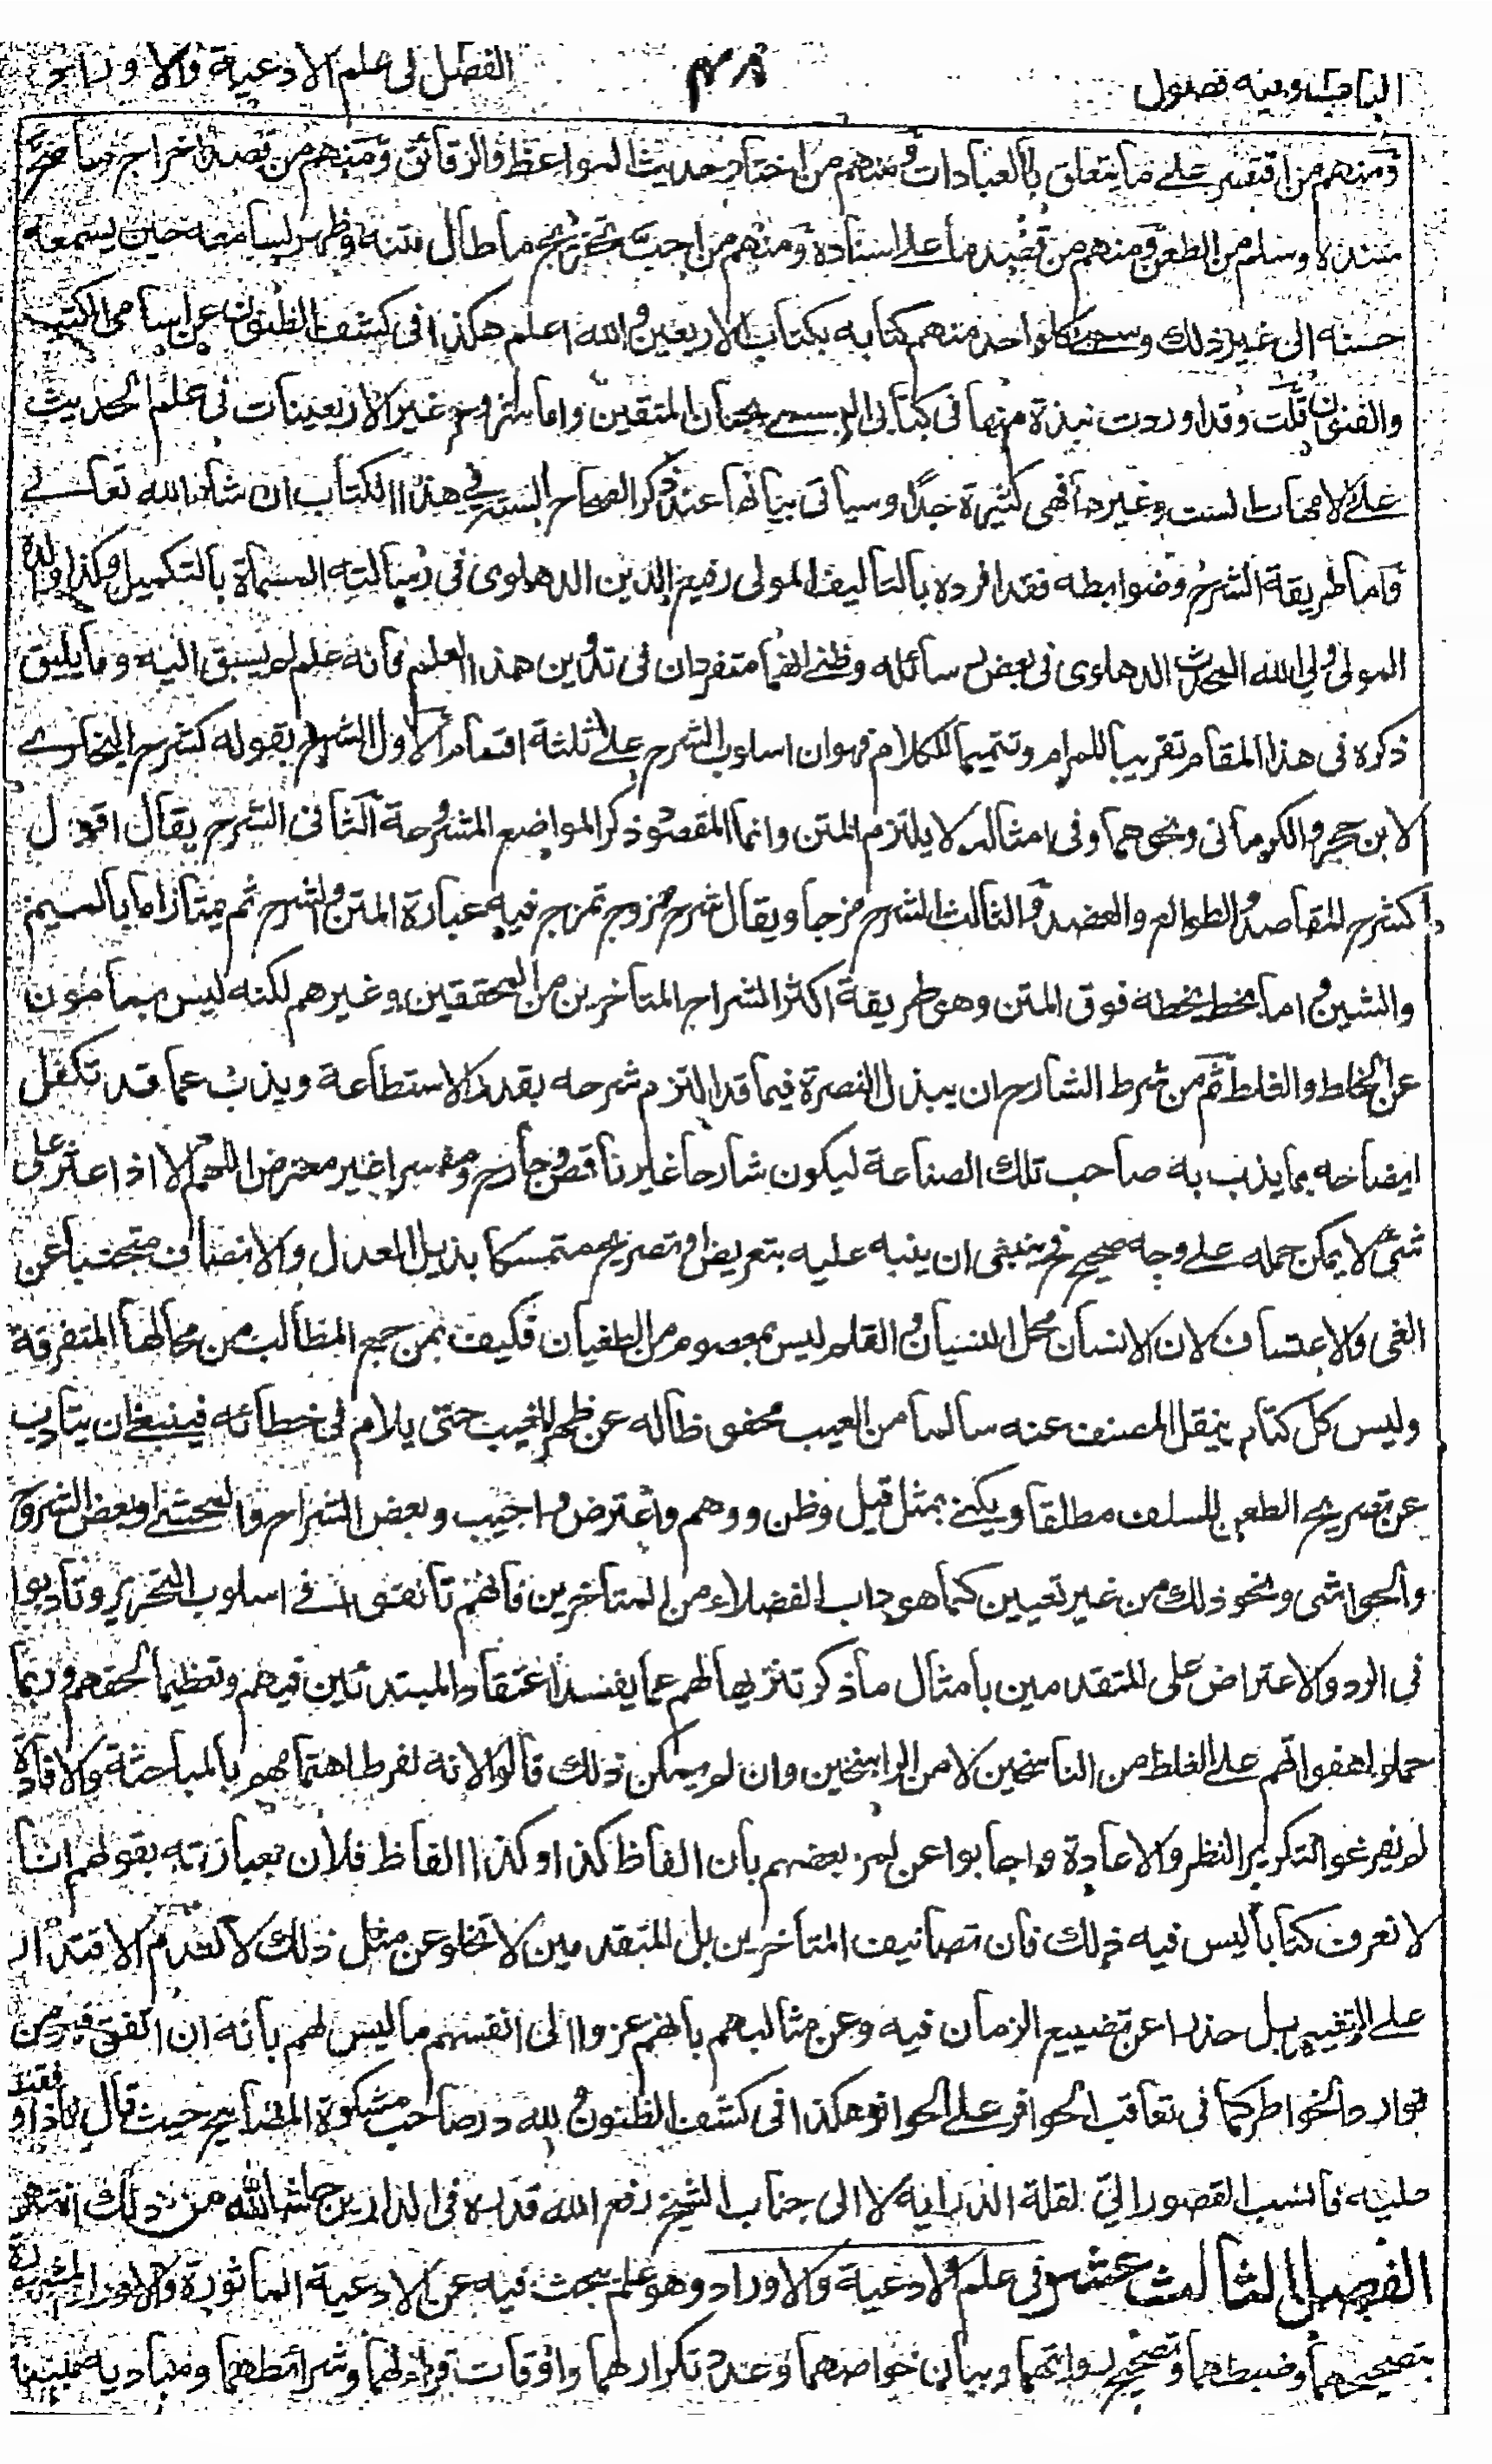 الباب وفيه فصول
٤٨
الفصل فى علم الادعية والاوراد
ومنهم من اقتصر على ما يتعلق بالعبادات ومنهم من اختار حديث المواعظ والرقائق ومنهم من قصد اخراج ما صح
سنده وسلم من الطعن ومنهم من قصد ما علا اسناده ومنهم من احب تخريج ما طال متنه وظهر لسامعه حين يسمعه
حسنه الى غير ذلك وسمى كل واحد منهم كتابه بكتاب الاربعين والله اعلم هكذا فى كشف الظنون عن اسامى الكتب
والفنون قلت وقد اوردت نبذة منها فى كتابى المسمى بجنان المتقين واما شروح غير الاربعينات فى علم الحديث
على الامهات الست وغيرها فهى كثيرة جدا وسياتى بيانها عند ذكر الصحاح الستة فى هذا الكتاب ان شاء الله تعالى
واما طريقة الشرح وضوابطه فقد افرده بالتاليف المولى رفيع الدين الدهلوى فى رسالته المسماة بالتكميل وكذا والده
المولى ولى الله المحدث الدهلوى فى بعض رسائله وظنى انهما متفردان فى تدوين هذا العلم فانه علم لم يسبق اليه وما يليق
ذكره فى هذا المقام تقريبا للمرام وتتميما للكلام فهو ان اسلوب الشرح على ثلثة اقسام الاول الشرح بقوله كشرح البخارى
لابن حجر والكرمانى ونحوهما وفى امثاله لا يلتزم المتن وانما المقصود ذكر المواضع المشروحة الثانى الشرح يقال اقول
كشرح المقاصد والطوالع والعضد والثالث الشرح مزجا ويقال شرح ممزوج تمزج فيه عبارة المتن والشرح ثم يمتاز اما بالميم
والشين واما بخط يخطه فوق المتن وهو طريقة اكثر الشراح المتاخرين من المحققين وغيرهم لكنه ليس بمامون
عن الخلط والغلط ثم من شرط الشارح ان يبذل النصرة فيما قد التزم شرحه بقدر الاستطاعة ويذب عما قد تكفل
ايضاحه بما يذب به صاحب تلك الصناعة ليكون شارحا غير ناقض وجارح ومفسرا غير معترض اللهم الا اذا عثر على
شئ لا يمكن حمله على وجه صحيح فح ينبغى ان ينبه عليه بتعريض او تصريح متمسكا بذيل العدل والانصاف متجنبا عن
الغى والاعتساف لان الانسان محل النسيان والقلم ليس بمعصوم من الطغيان فكيف بمن جمع المطالب من محالها المتفرقة
وليس كل كتاب ينقل المصنف عنه سالما من العيب محفوظا له عن ظهر الغيب حتى يلام فى خطائه فينبغى ان يتادب
عن تصريح الطعن للسلف مطلقا ويكنى بمثل قيل وظن ووهم واعترض واجيب وبعض الشراح والمحشى او بعض الشروح
والحواشى ونحو ذلك من غير تعيين كما هو داب الفضلاء من المتاخرين فانهم تانقوا فى اسلوب التحرير وتادبوا
فى الرد والاعتراض على المتقدمين بامثال ما ذكر تنزيها لهم عما يفسد اعتقاد المبتدئين فيهم وتعظيما لحقهم وربما
حملوا هفواتهم على الغلط من الناسخين لا من الراسخين وان لم يمكن ذلك قالوا لانه لفرط اهتمامهم بالمباحثة والافادة
لم يفرغوا لتكرير النظر والاعادة واجابوا عن لمز بعضهم بان الفاظ كذا وكذا الفاظ فلان بعبارته بقولهم انا
لا نعرف كتابا ليس فيه ذلك فان تصانيف المتاخرين بل المتقدمين لا تخلو عن مثل ذلك لا لعدم الاقتدار
على التغيير بل حذرا عن تضييع الزمان فيه وعن مثالبهم بانهم عزوا الى انفسهم ما ليس لهم بانه ان اتفق فهو من
توارد الخواطر كما فى تعاقب الحوافر على الحوافر هكذا فى كشف الظنون ولله در صاحب مشكوة المصابيح حيث قال فاذا وقفت
عليه فانسب القصور الىّ لقلة الدراية لا الى جناب الشيخ رفع الله قدره فى الدارين حاشا لله من ذلك انتهى
الفصل الثالث عشر فى علم الادعية والاوراد وهو علم يبحث فيه عن الادعية الماثورة والاوراد المشهورة
بتصحيحهما وضبطهما وتصحيح روايتهما وبيان خواصهما وعدد تكرارهما واوقات قراءتهما وشرائطهما ومباديه مبينة